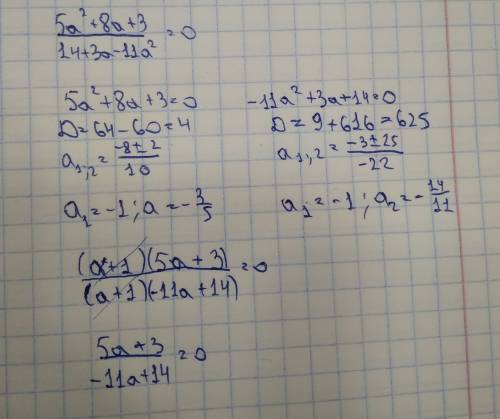 (5a²+8a+3)/(14+3a-11a²)=0
5a²+8a+3=0
D=64-60=4
a₁;₂=(-8±2)/10
a₁=-1; a=-3/5
-11a²+3a+14=0
D=9+616=625
a₁,₂=(-3±25)/-22
a₁=-1; a₂=-14/11
(a+1)(5a+3)/(a+1)(-11a+14)=0
(5a+3)/(-11a+14)=0